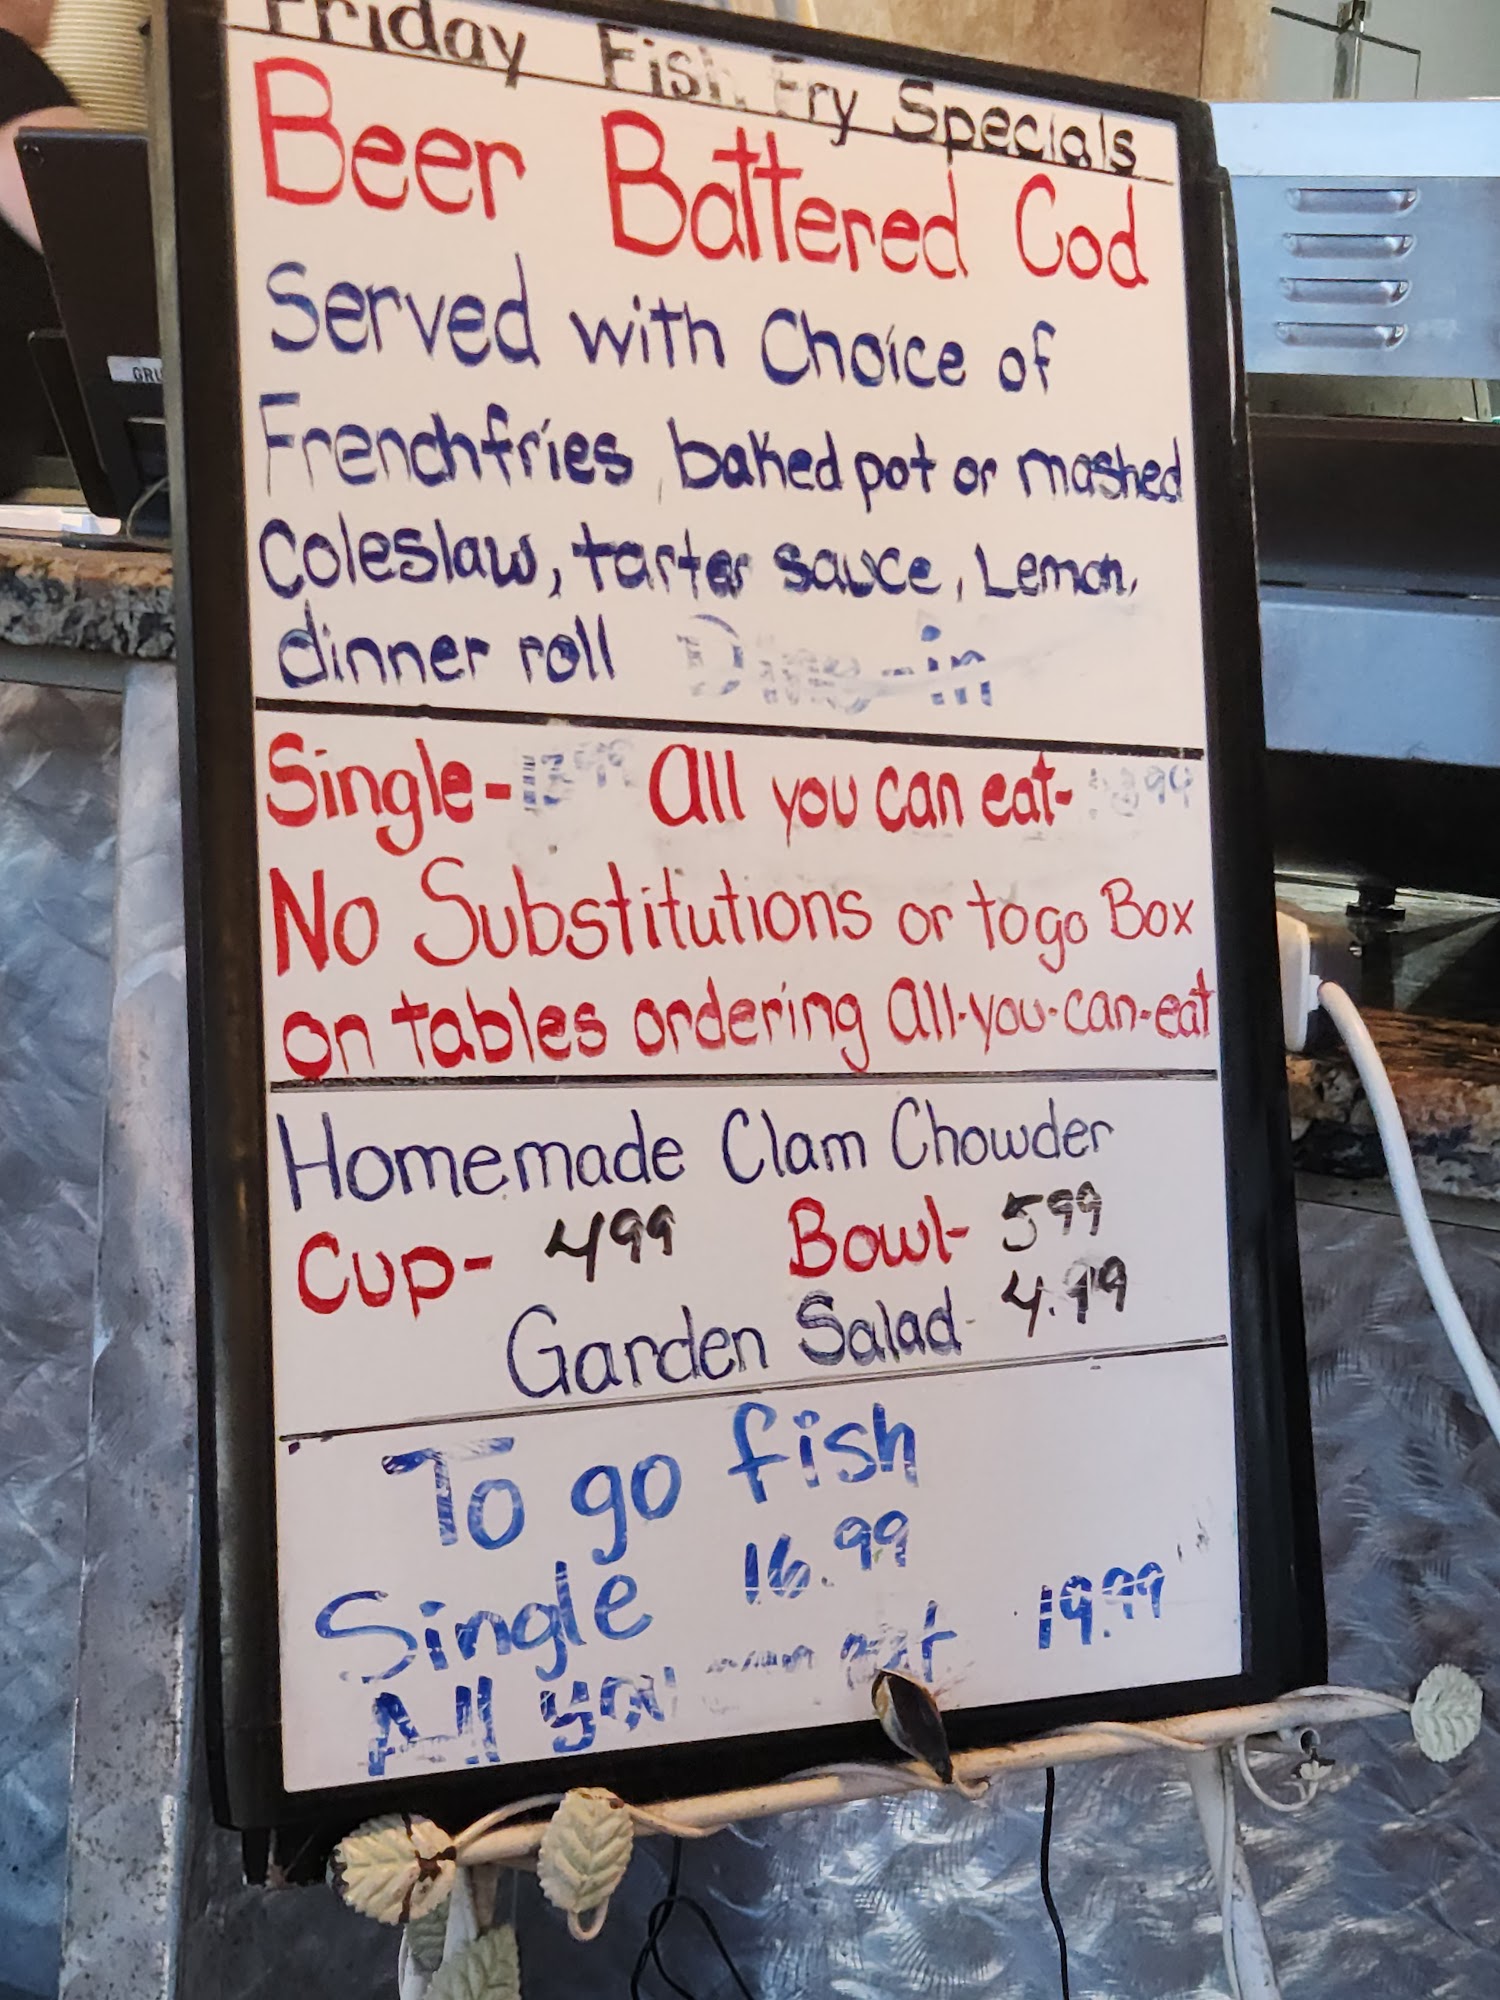 Friday Fish Fry Specials
Beer Battered Cod
Served with Choice of
Frenchfries, baked pot or mashed
Coleslaw, tarter sauce, Lemon,
dinner roll Dine-in
Single- All you can eat-
No Substitutions or togo Box
on tables ordering all-you-can-eat
Homemade Clam Chowder
Cup- 499 Bowl- 599
Garden Salad- 4.99
To go fish
Single 16.99
All you can eat 19.99
GRU